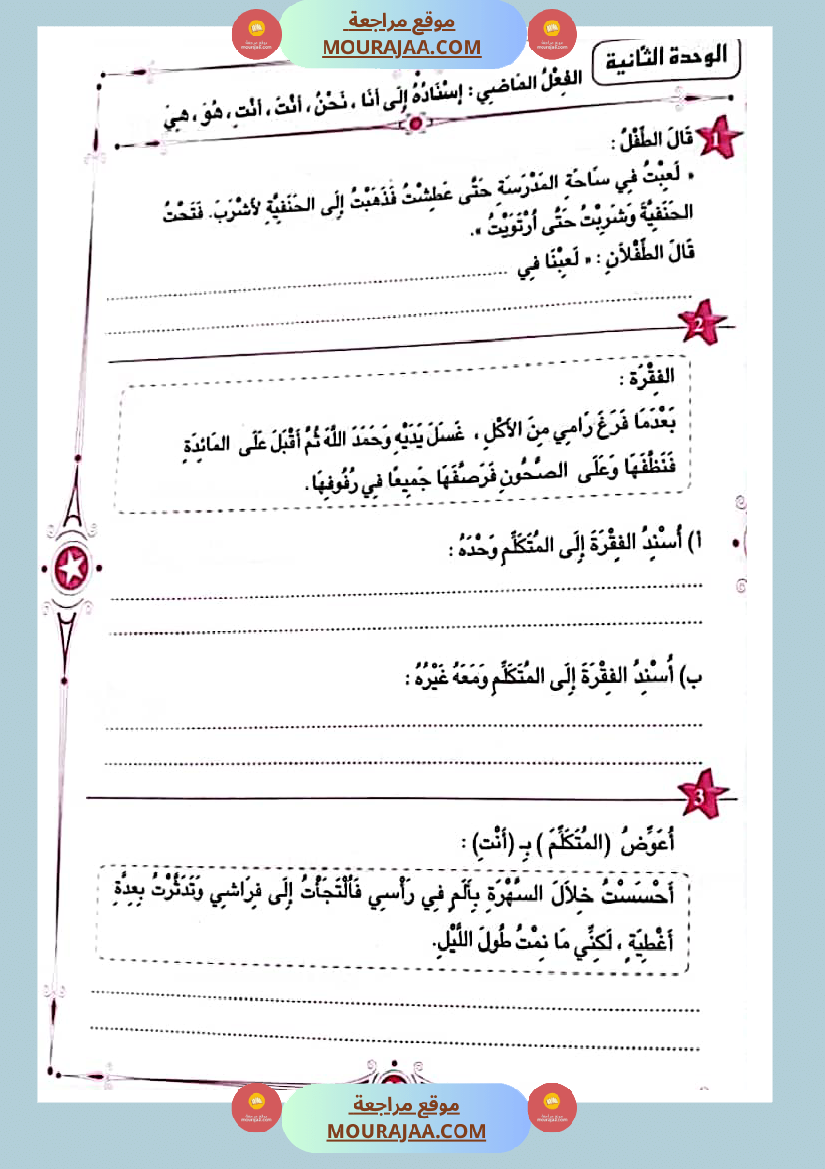 موقع مراجعة
MOURAJAA.COM
الوحدة الثانية
الفِعْلُ المَاضِي : إِسْنَادُهُ إِلَى أَنَا ، نَحْنُ ، أَنْتَ ، أَنْتِ ، هُوَ ، هِيَ
1
قَالَ الطِّفْلُ :
« لَعِبْتُ فِي سَاحَةِ المَدْرَسَةِ حَتَّى عَطِشْتُ فَذَهَبْتُ إِلَى الحَنَفِيَّةِ لأَشْرَبَ. فَتَحْتُ
الحَنَفِيَّةَ وَشَرِبْتُ حَتَّى اُرْتَوَيْتُ ».
قَالَ الطِّفْلاَنِ : « لَعِبْنَا فِي
2
الفِقْرَة :
بَعْدَمَا فَرَغَ رَامِي مِنَ الأَكْلِ ، غَسَلَ يَدَيْهِ وَحَمَدَ اللَّهَ ثُمَّ أَقْبَلَ عَلَى المَائِدَةِ
فَنَظَّفَهَا وَعَلَى الصُّحُونِ فَرَصَّفَهَا جَمِيعًا فِي رُفُوفِهَا.
أ) أُسْنِدُ الفِقْرَةَ إِلَى المُتَكَلِّمِ وَحْدَهُ :
ب) أُسْنِدُ الفِقْرَةَ إِلَى المُتَكَلِّمِ وَمَعَهُ غَيْرُهُ :
3
أُعَوِّضُ (المُتَكَلِّمَ ) بِـ (أَنْتِ) :
أَحْسَسْتُ خِلاَلَ السَّهْرَةِ بِأَلَمٍ فِي رَأْسِي فَاُلْتَجَأْتُ إِلَى فِرَاشِي وَتَدَثَّرْتُ بِعِدَّةِ
أَغْطِيَةٍ ، لَكِنِّي مَا نِمْتُ طُولَ اللَّيْلِ.
موقع مراجعة
MOURAJAA.COM